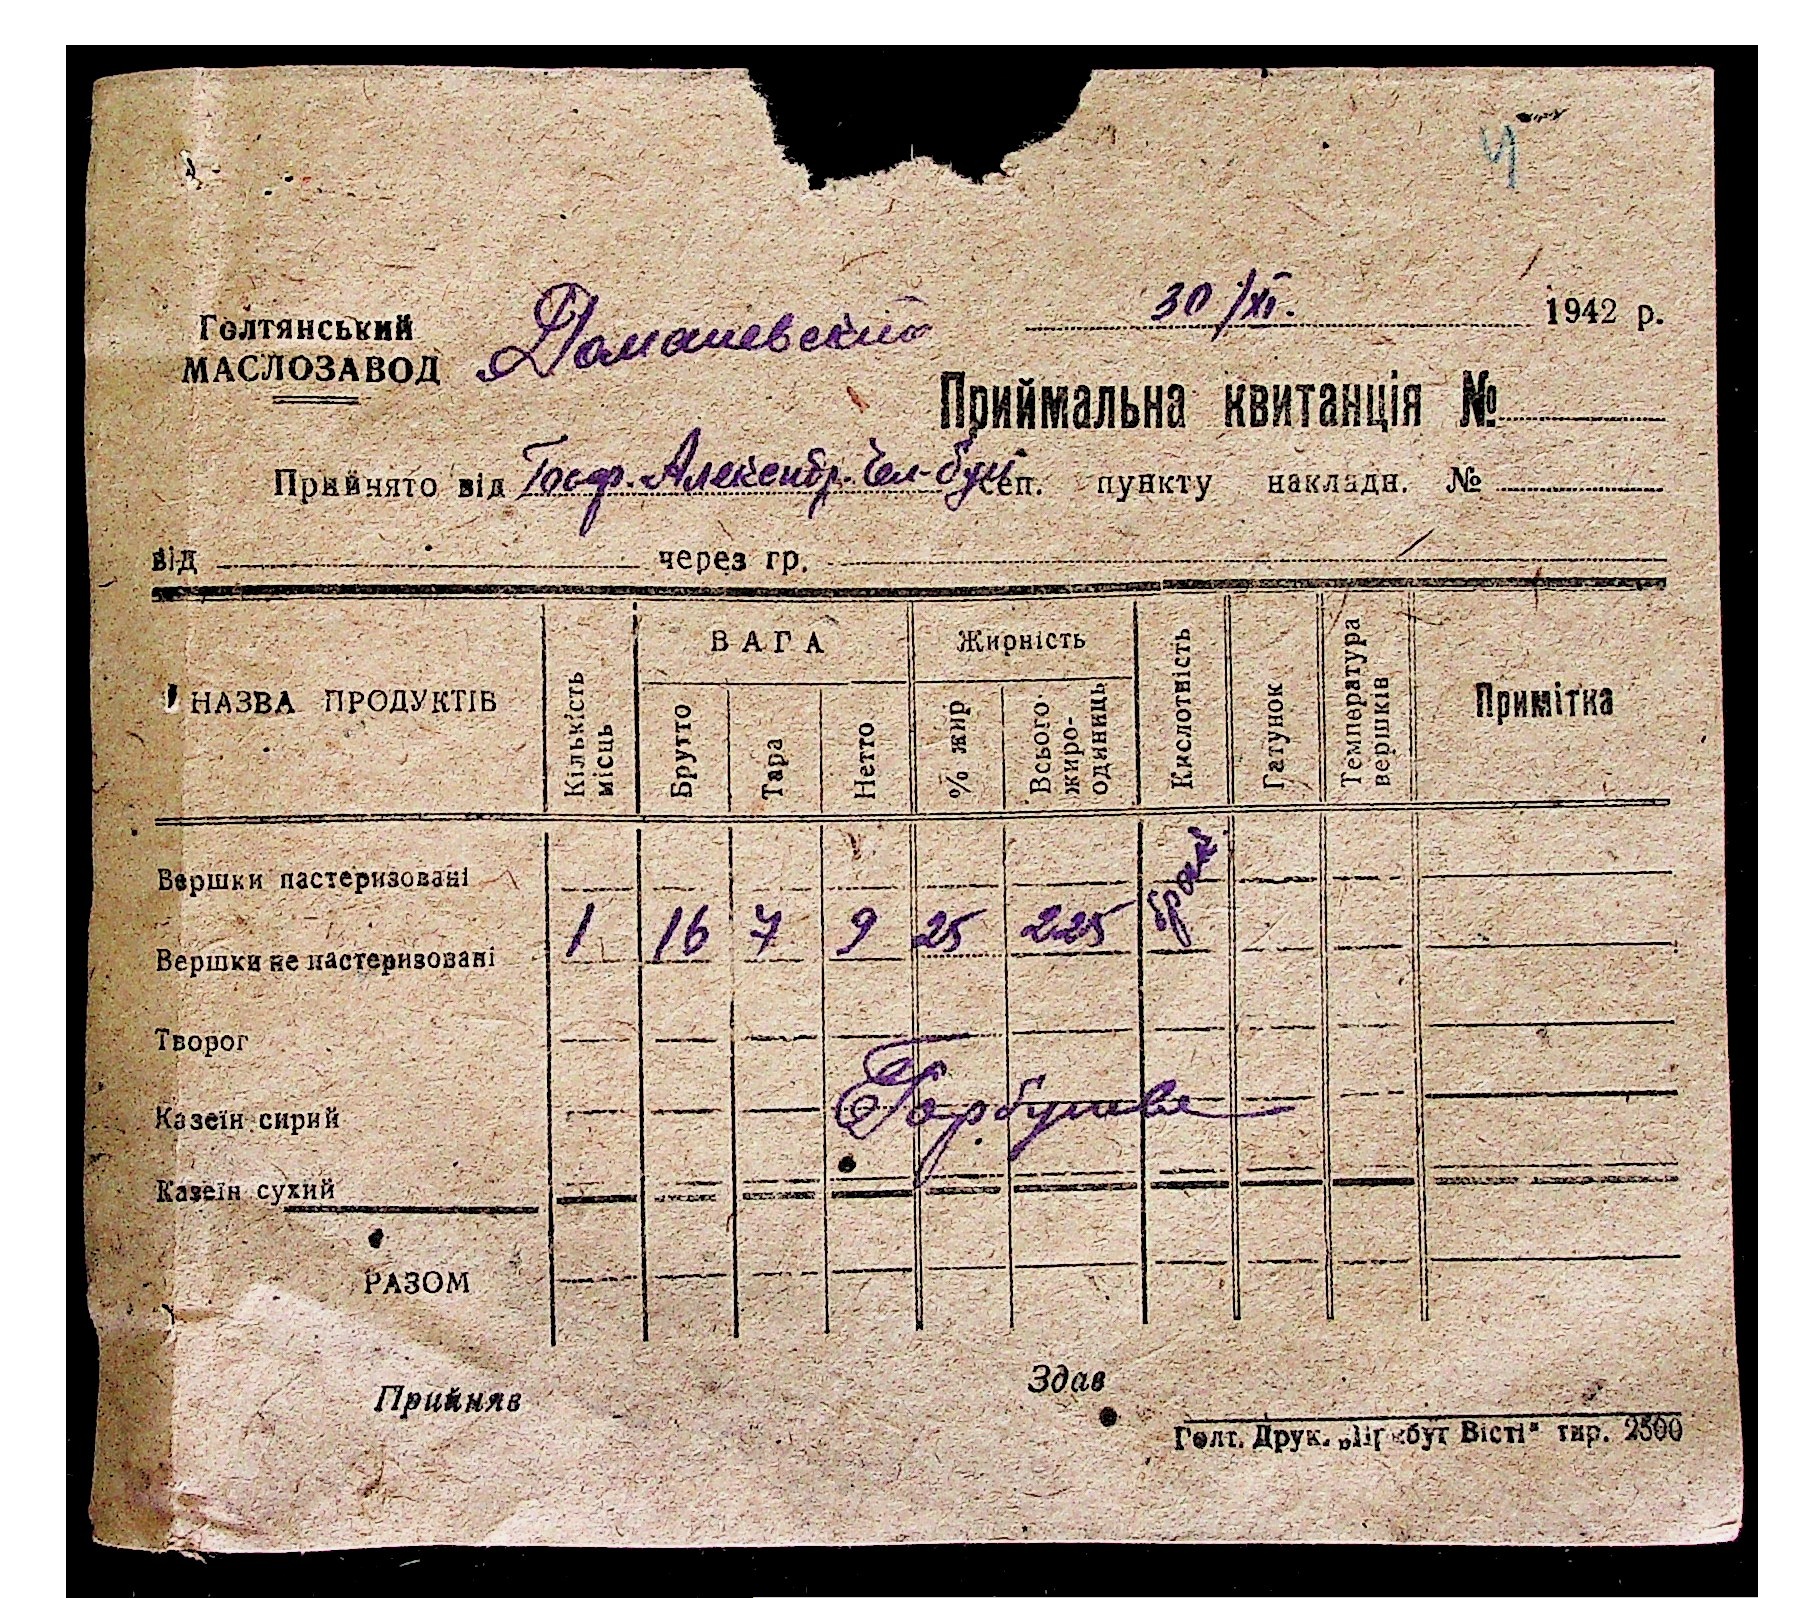 4
Голтянський
МАСЛОЗАВОД
Доманевский
30/XI. 1942 р.
Приймальна квитанція №
Прийнято від Госф. сеп. пункту накладн. №
від через гр.
НАЗВА ПРОДУКТІВ Кількість місць ВАГА Брутто Тара Нетто Жирність % жир Всього жиро-одиниць Кислотність Гатунок Температура вершків Примітка
Вершки пастеризовані
Вершки не пастеризовані 1 16 7 9 25 225 брак
Творог
Казеїн сирий
Казеїн сухий
РАЗОМ
Прийняв Здав
Голт. Друк. „Прибут Вісті“ тир. 2500